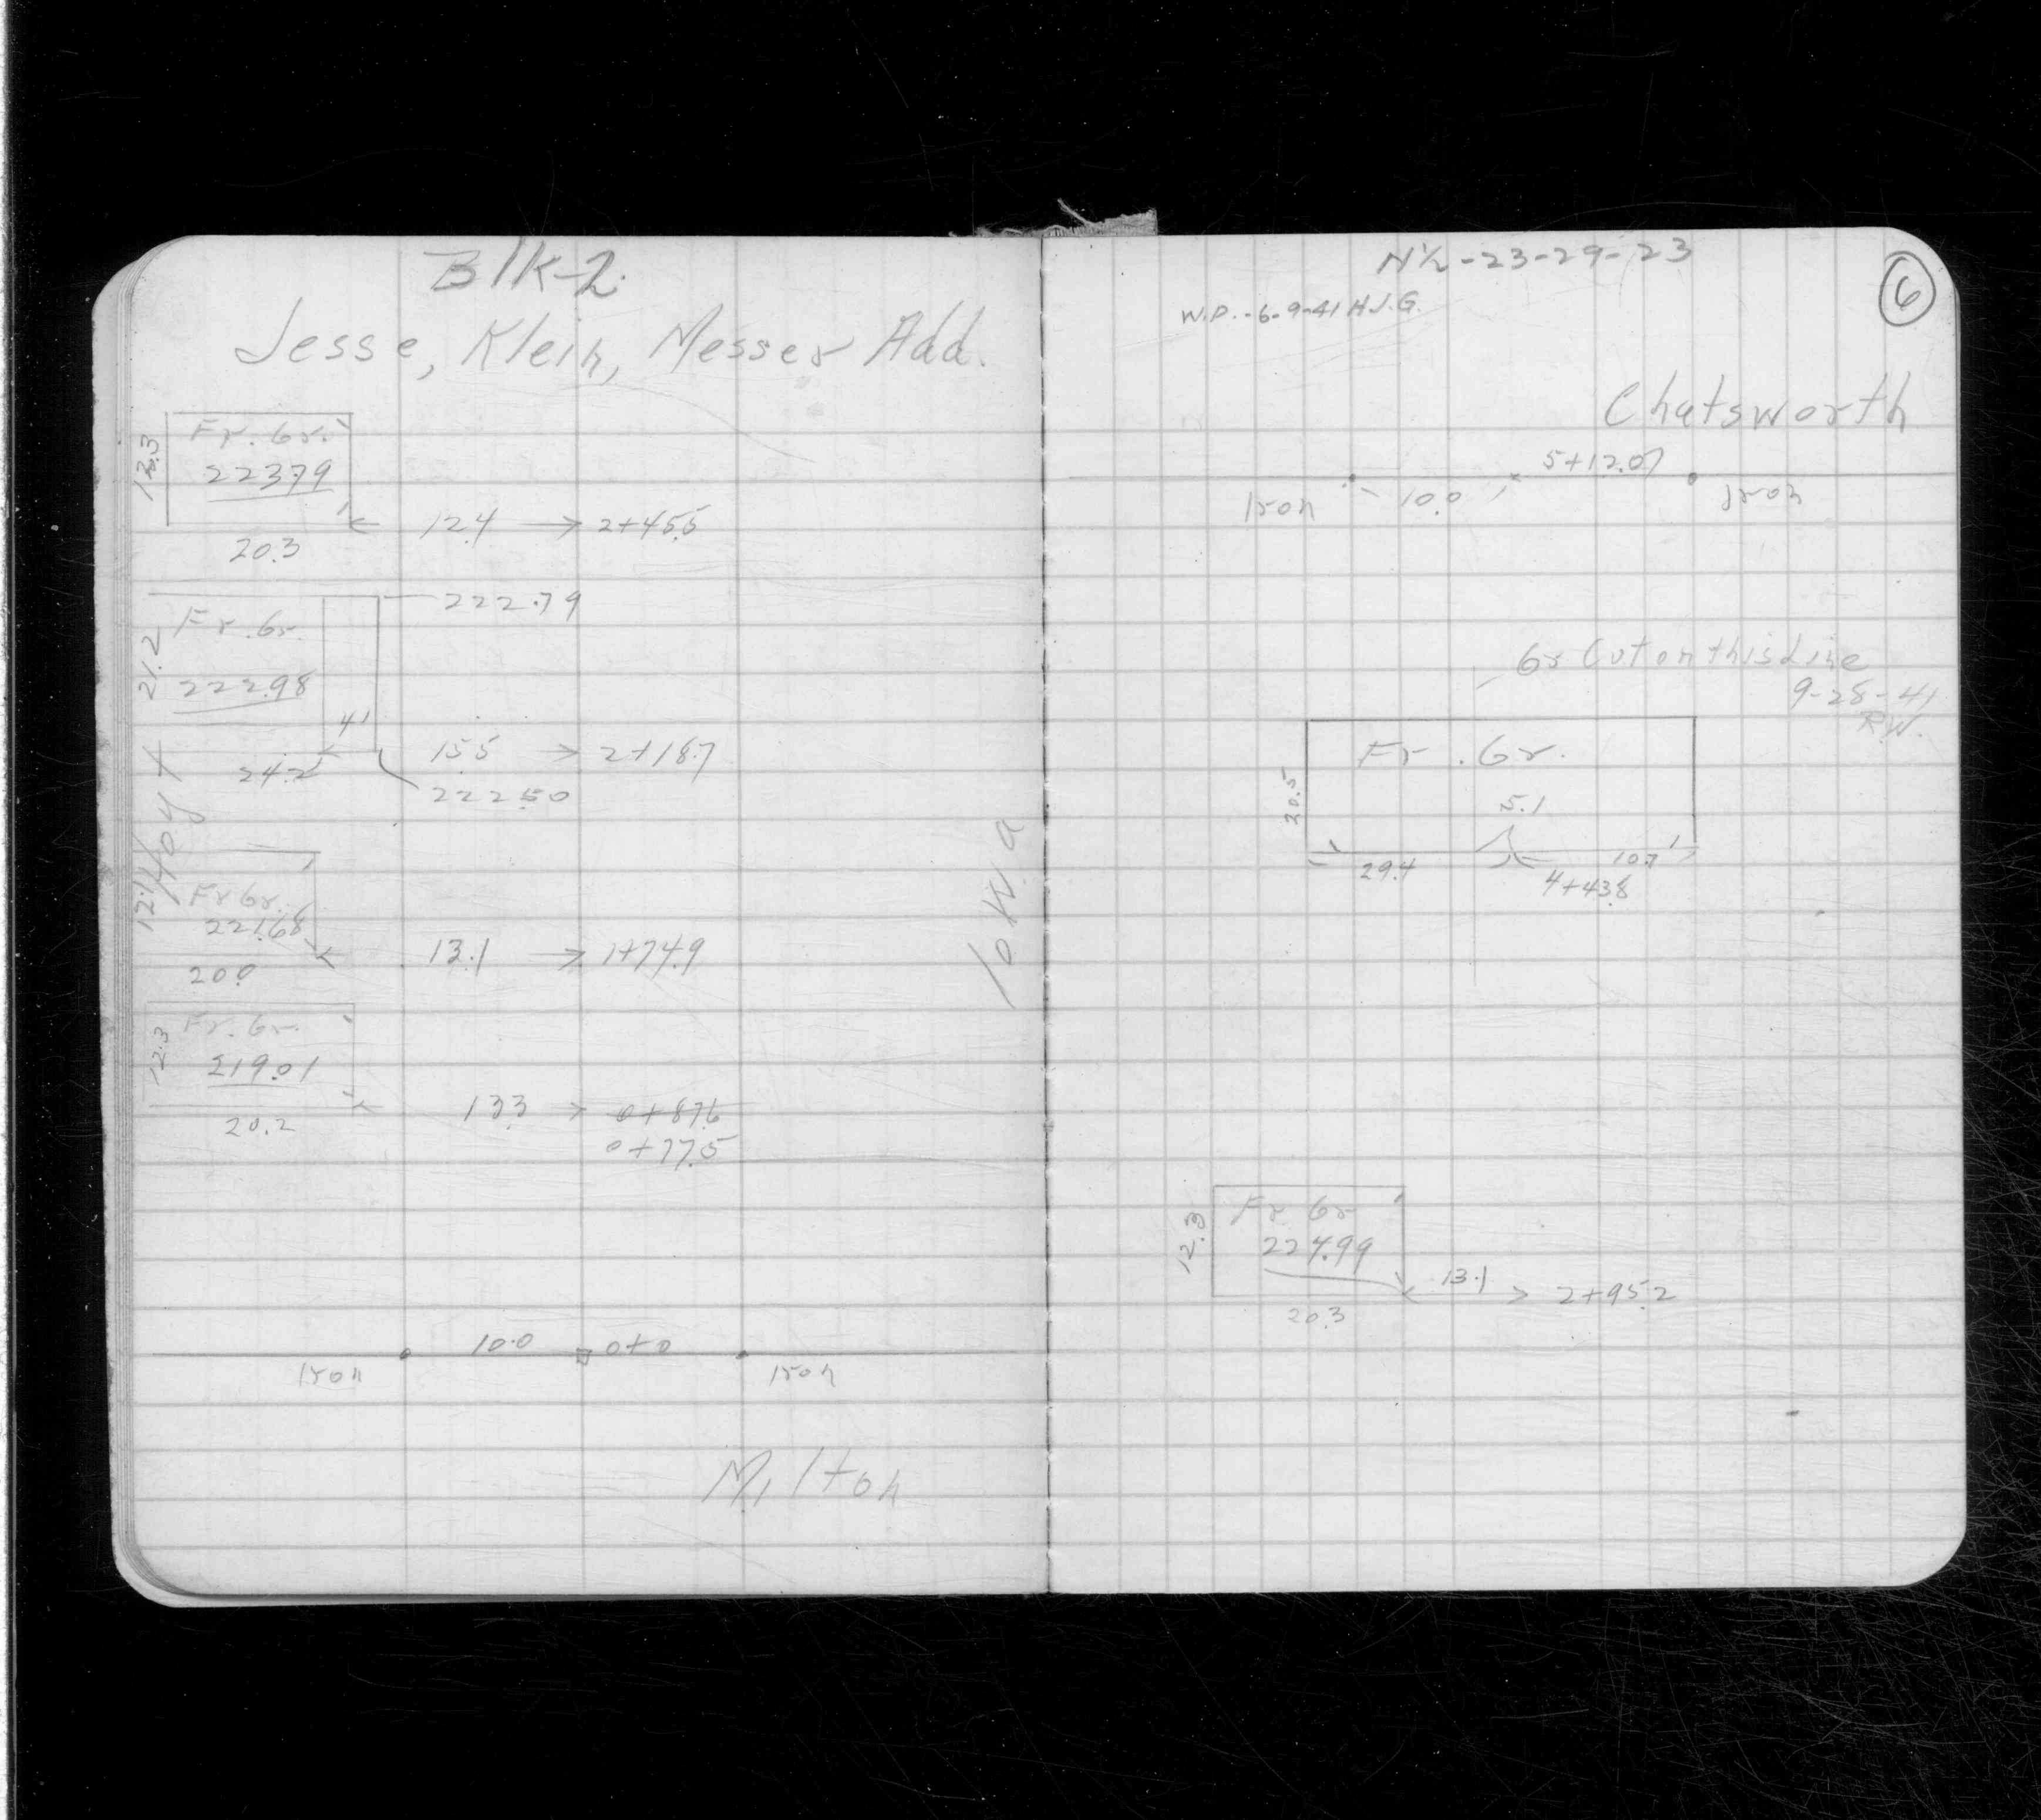 Blk-2
Jesse, Klein, Messer Add.
Fr. Gr.
223.79
20.3
12.4
2+45.5
222.79
Fr. Gr.
21.2
222.98
4.1
24.2
15.5
2+18.7
222.50
Hoyt
12.1
Fr Gr.
221.68
20.0
13.1
1+74.9
Fr. Gr.
12.3
219.01
20.2
13.3
0+87.6
0+77.5
Iron
10.0
0+0
Iron
Milton
Iowa
N½-23-29-23
6
W.P.-6-9-41 H.J.G.
Chatsworth
5+12.07
Iron
10.0
Iron
Gr Cut on this Line
9-28-41
R.W.
Fr. Gr.
20.5
5.1
29.4
10.7
4+43.8
Fr Gr
12.3
224.99
20.3
13.1
2+95.2